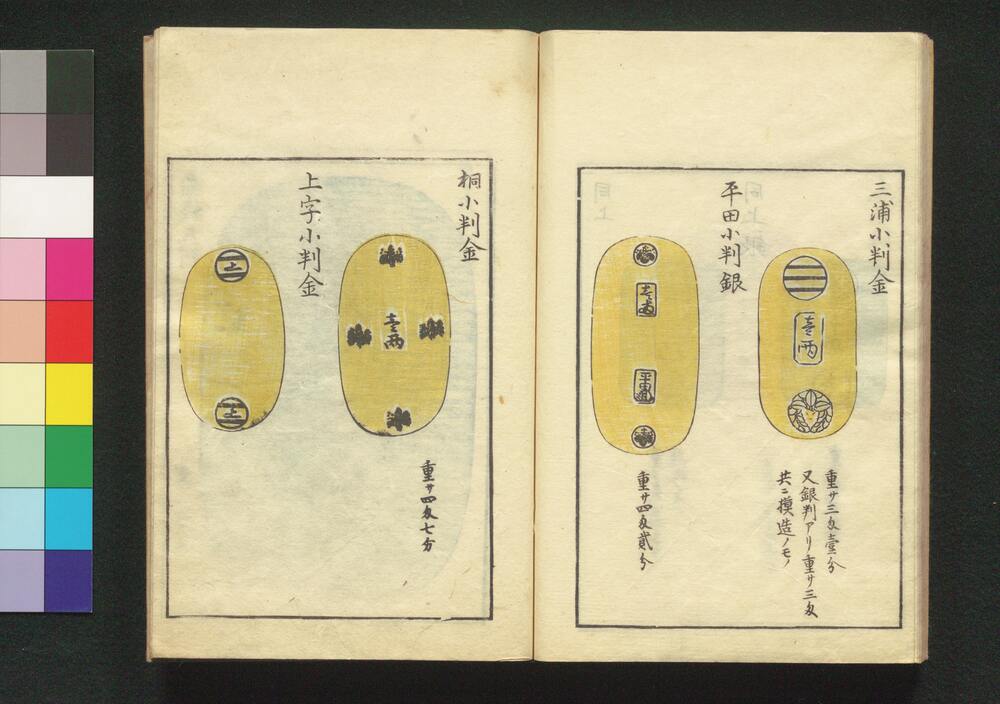 三浦小判金
壹両
重サ三匁壹分
又銀判アリ重サ三匁
共ニ模造ノモノ
平田小判銀
壹両
重サ四匁貳分
桐小判金
壹両
重サ四匁七分
上字小判金
上
上